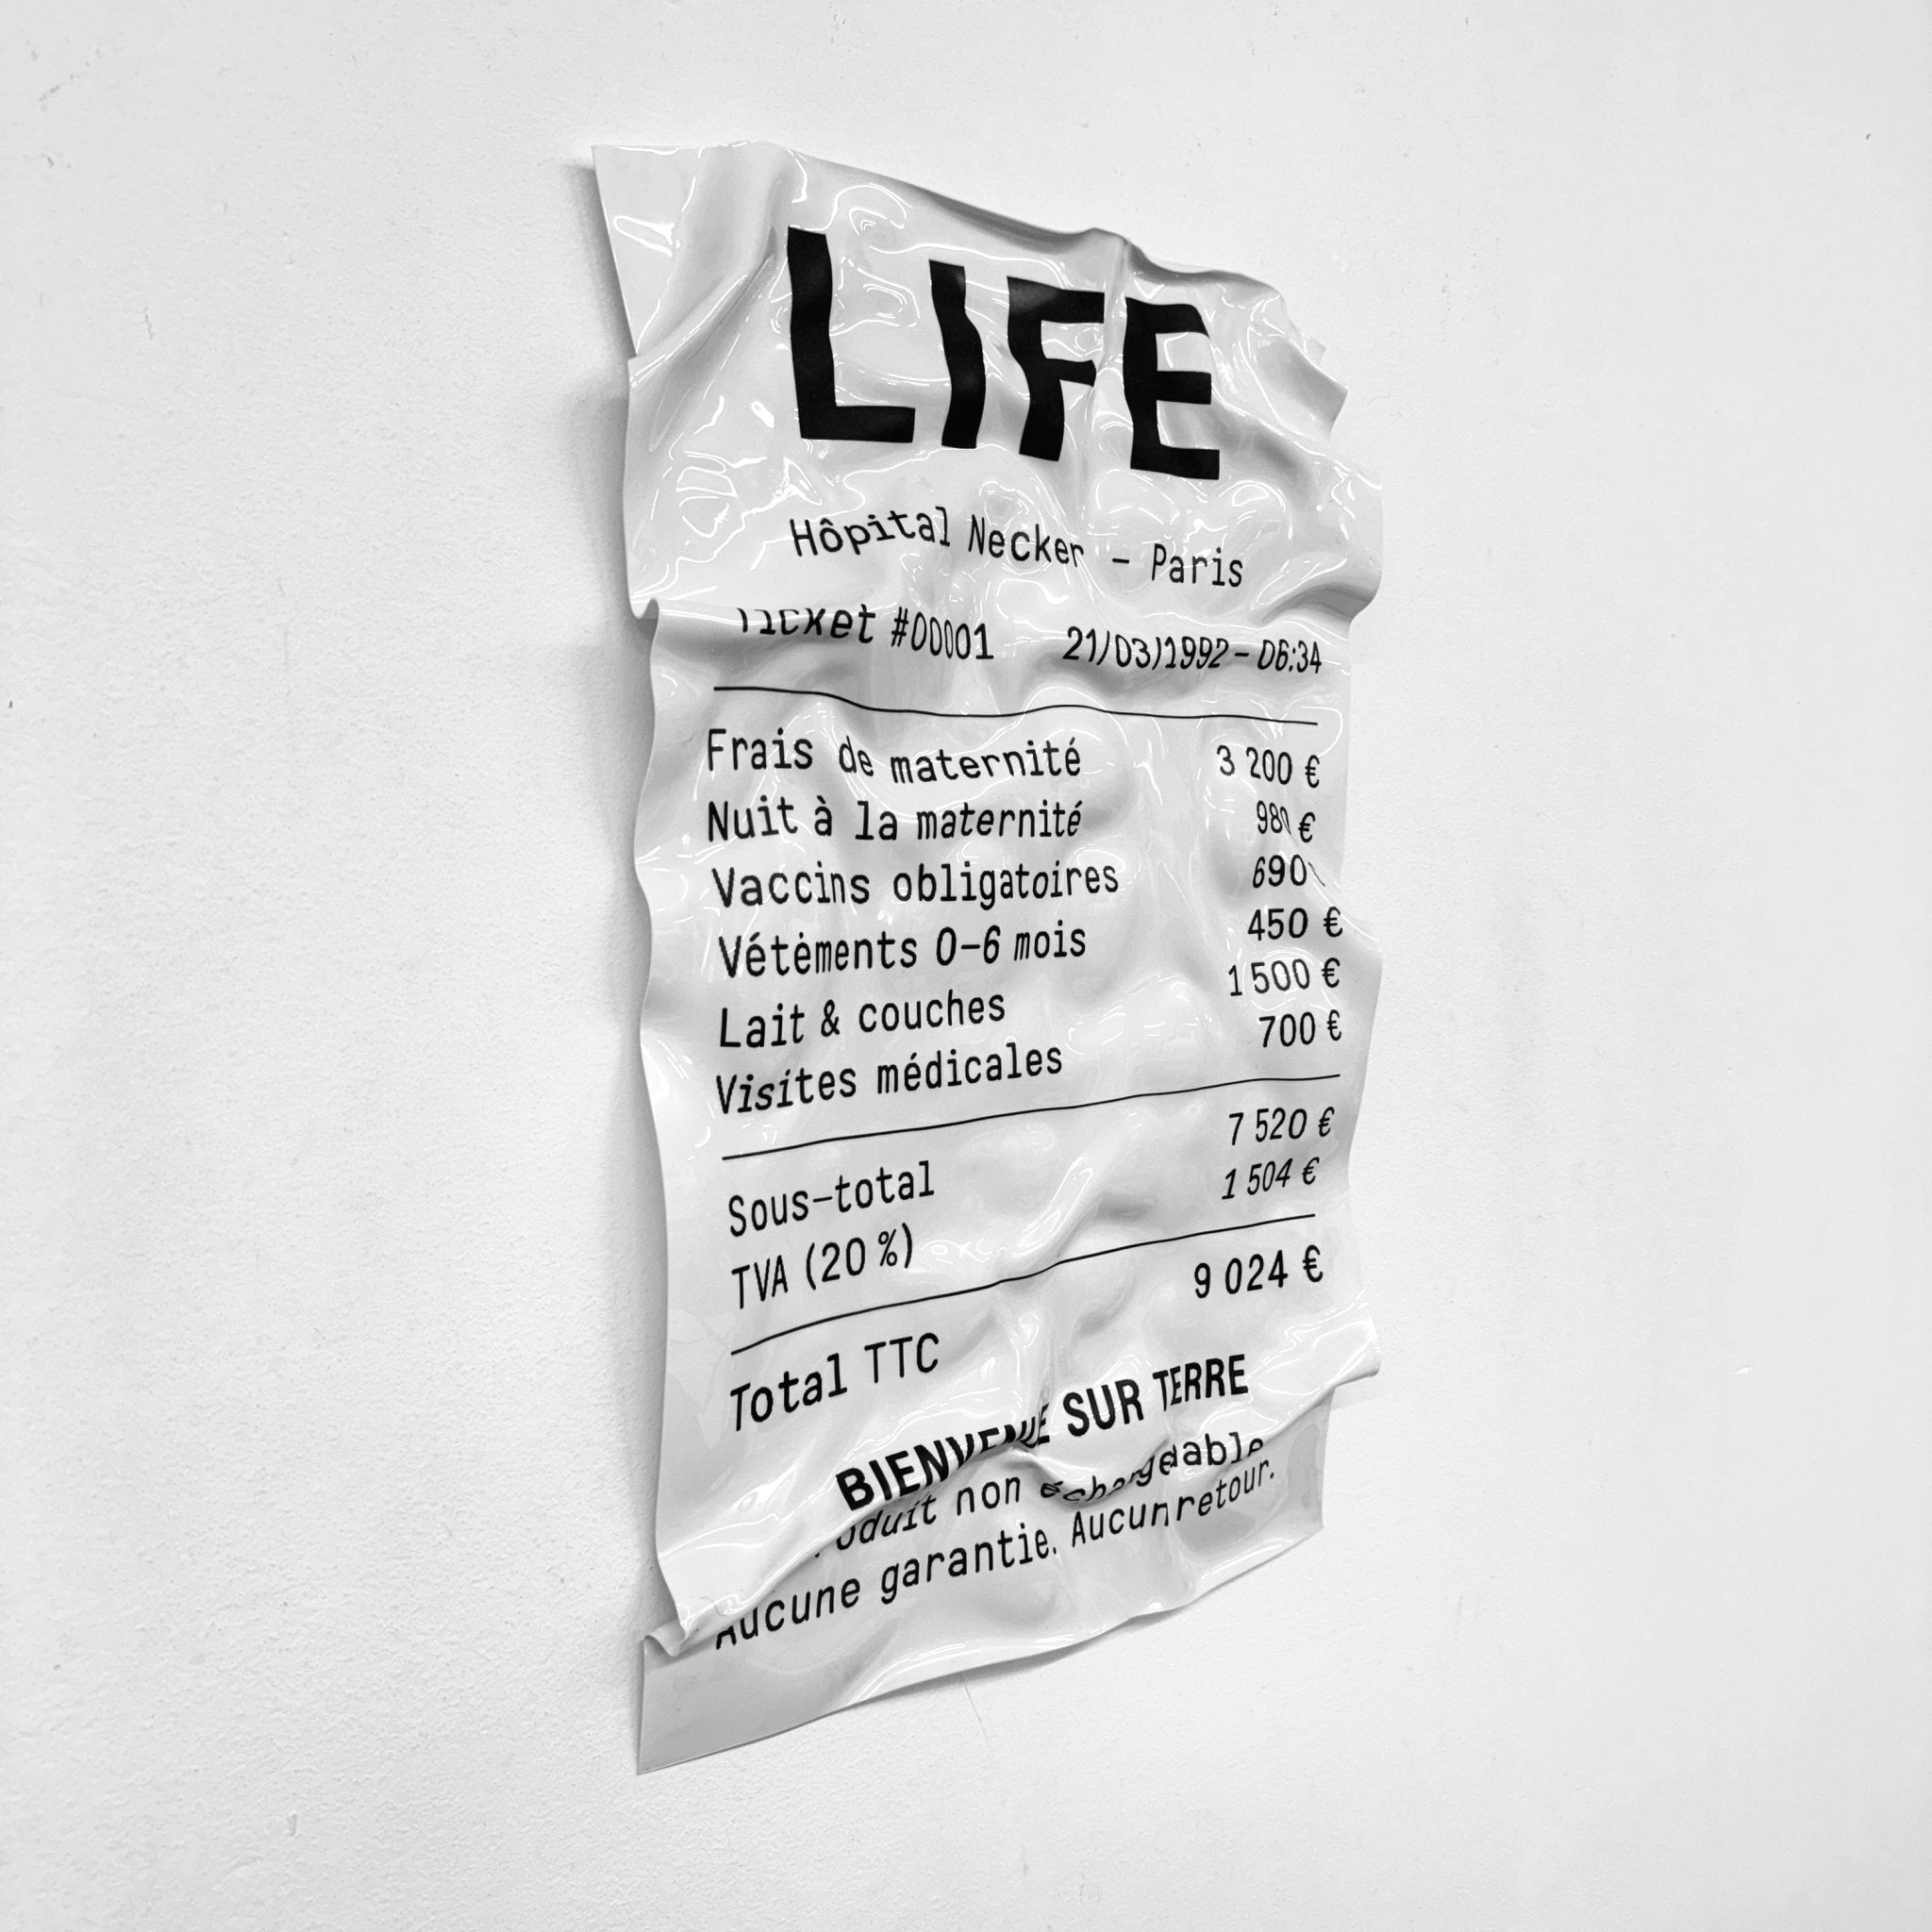 LIFE
Hôpital Necker - Paris
Ticket #00001 21/03/1992 - 06:34
Frais de maternité 3 200 €
Nuit à la maternité 980 €
Vaccins obligatoires 690
Vétėments 0-6 mois 450 €
Lait & couches 1 500 €
Visites médicales 700 €
Sous-total 7 520 €
TVA (20 %) 1 504 €
Total TTC 9 024 €
BIENVENUE SUR TERRE
Produit non échangeable
Aucune garantie. Aucun retour.